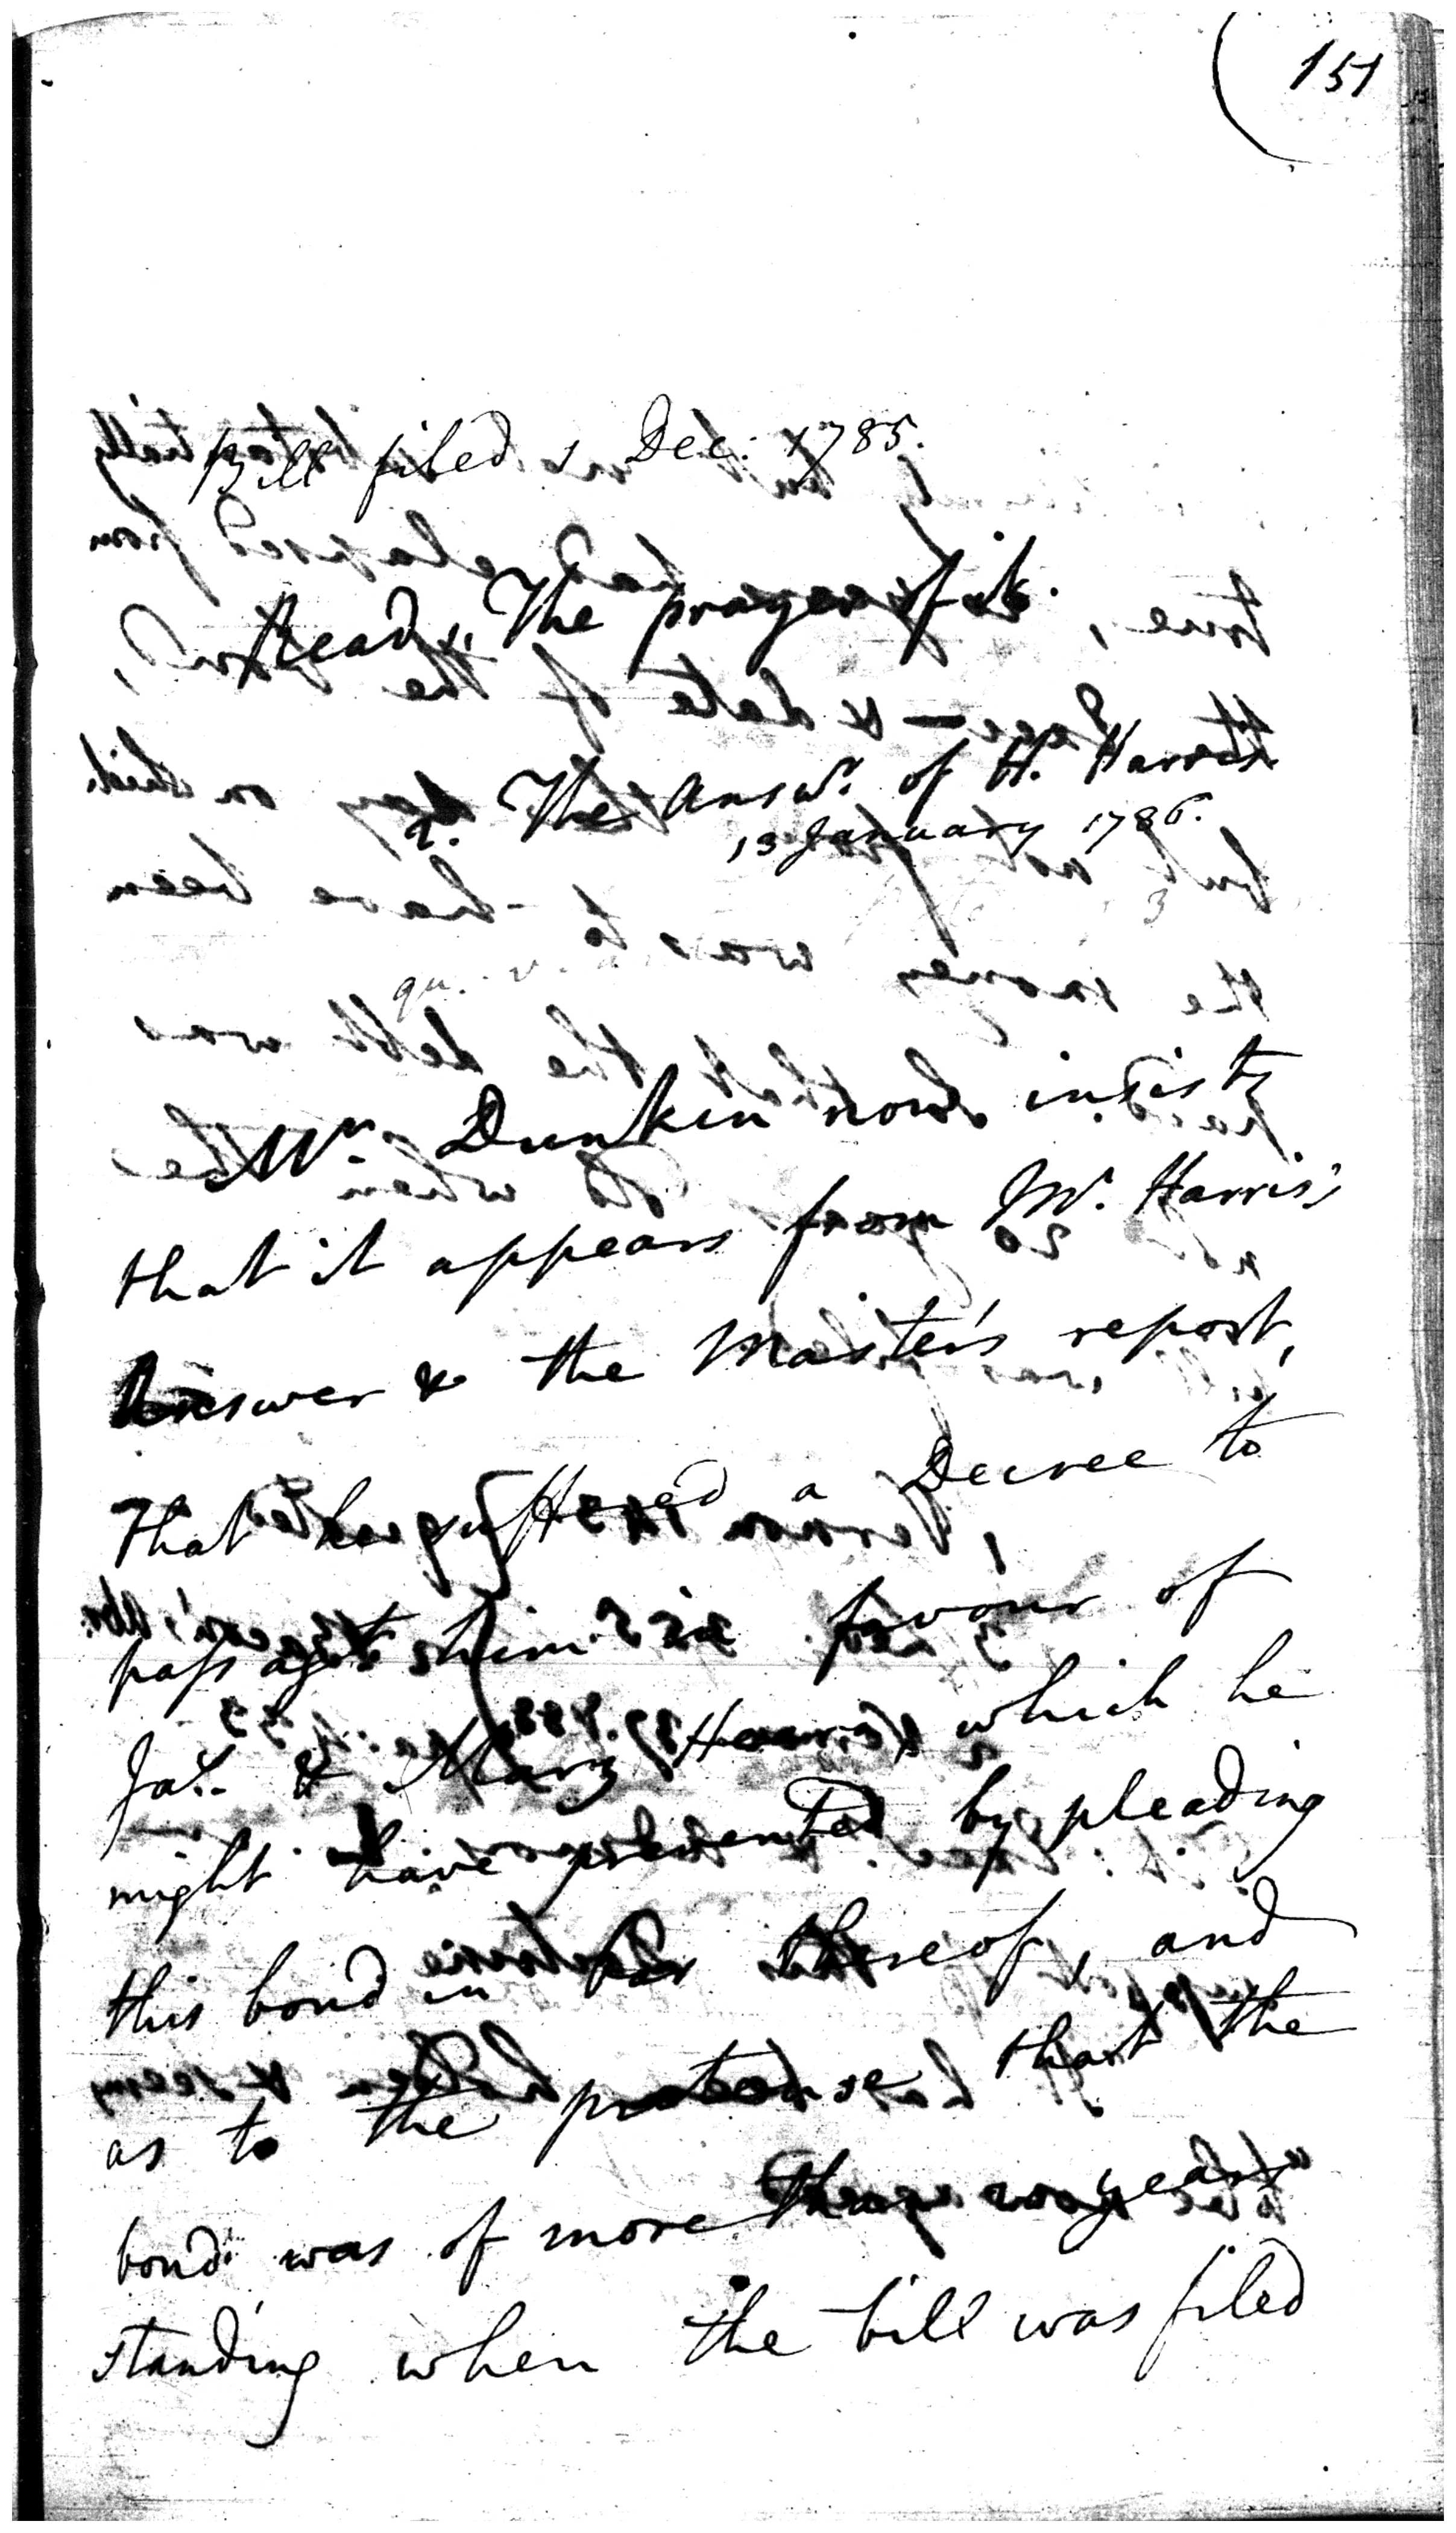 (151
Bill filed 1 Dec: 1785.
Read, The prayer of it.
2. The Answr. of H. Harris
13 January 1786.
qu.
Mr. Dunkin now insists
that it appears from Mr. Harris's
Answer & the Master's report,
that he suffered a Decree to
pass agst. him in favour of
Jas. & Mary which he
might have prevented by pleading
this bond in Bar thereof, and
as to the pretense that the
bond was of more than 20 years
standing when the bill was filed